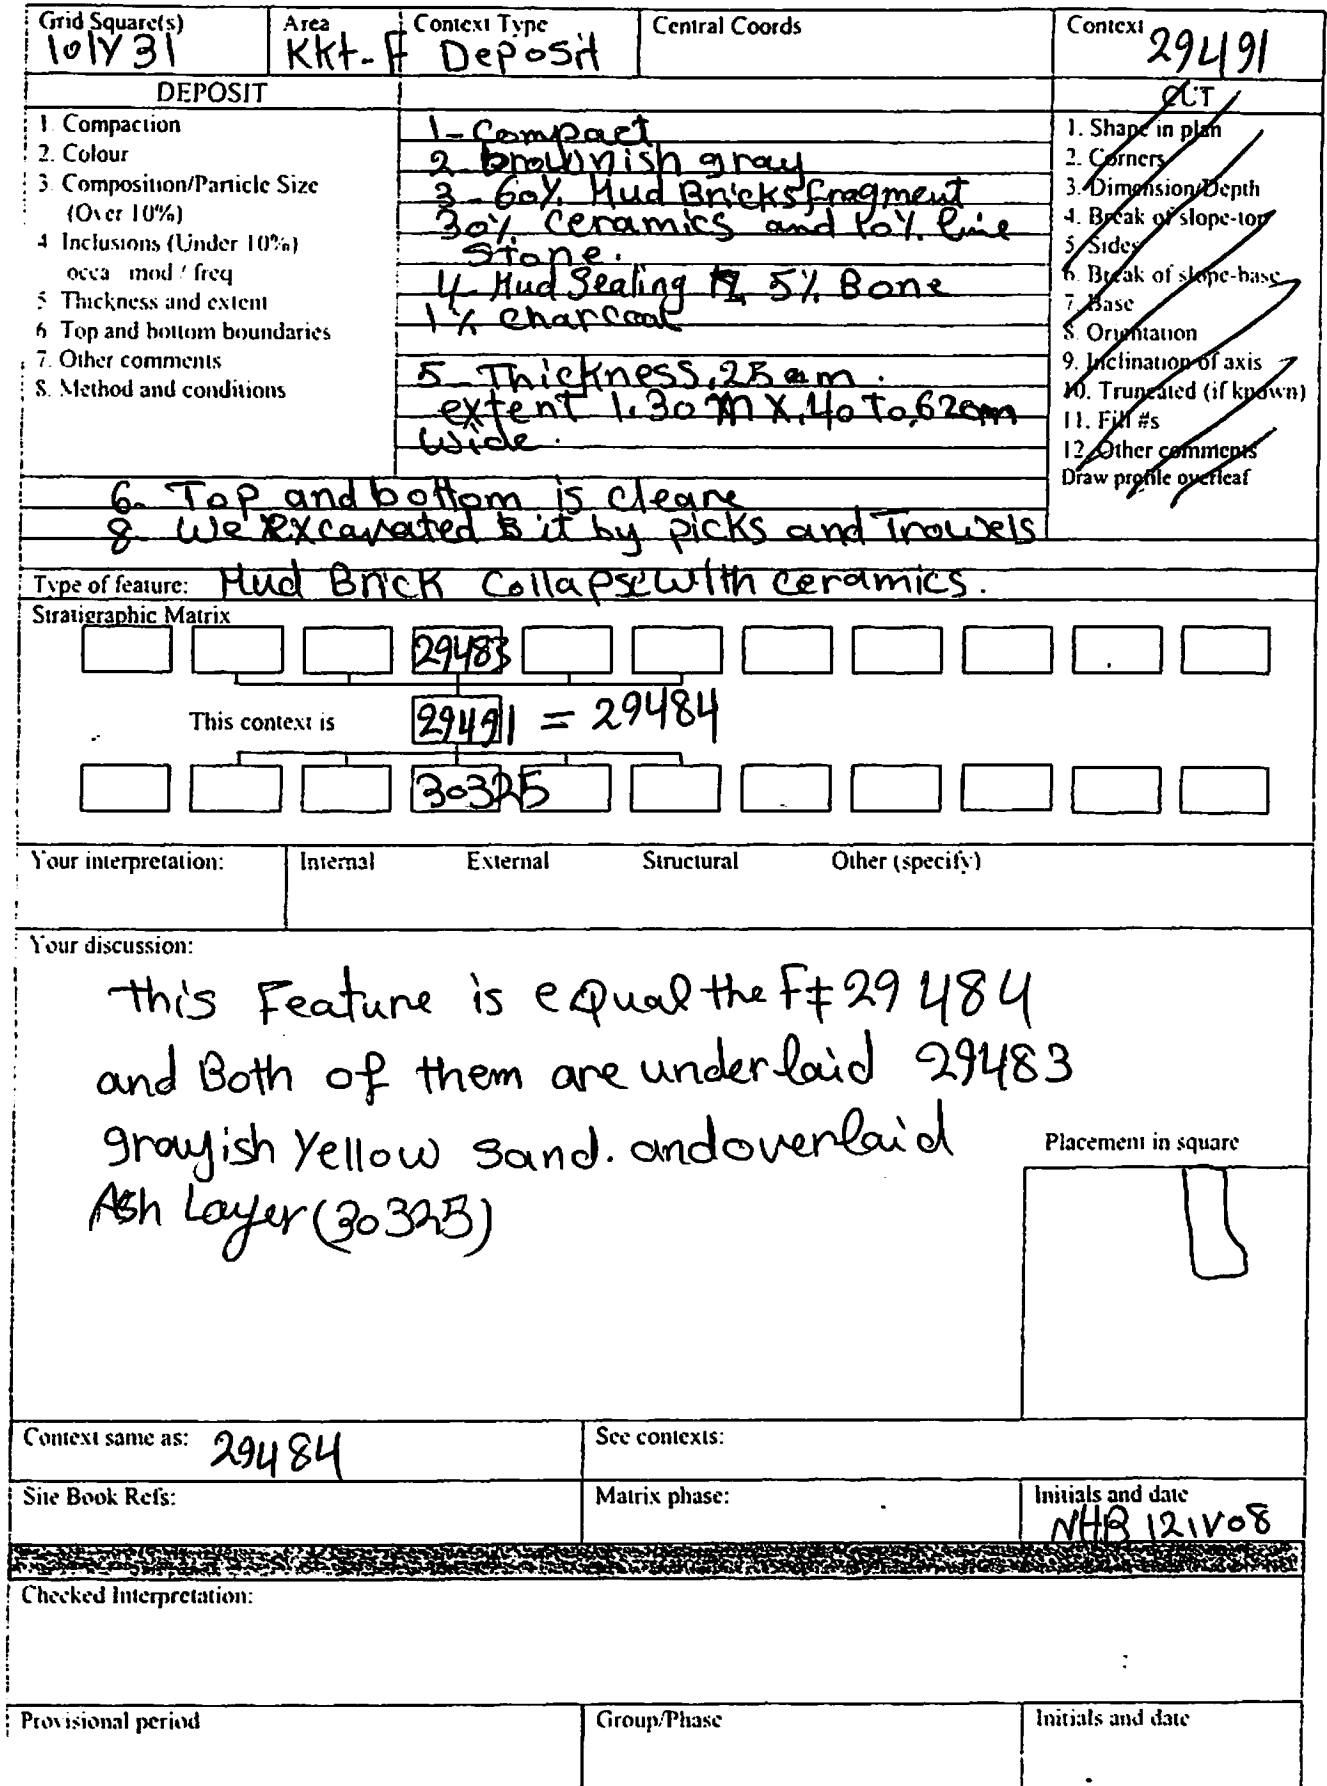 Grid Square(s) Area Context Type Central Coords Context
101Y31 KKT-F Deposit 29491
DEPOSIT CUT
1. Compaction
2. Colour
3. Composition/Particle Size
(Over 10%)
4. Inclusions (Under 10%)
occa mod / freq
5. Thickness and extent
6. Top and bottom boundaries
7. Other comments
8. Method and conditions
1- Compact
2- brownish gray
3- 60% Mud Bricks fragment
30% ceramics and 10% lime
Stone.
4- Mud Sealing 5% Bone
1% charcoal
5- Thickness .25 cm.
extent 1.30 m X .40 To .62 cm
wide.
1. Shape in plan
2. Corners
3. Dimension/Depth
4. Break of slope-top
5. Sides
6. Break of slope-base
7. Base
8. Orientation
9. Inclination of axis
10. Truncated (if known)
11. Fill #s
12. Other comments
Draw profile overleaf
6- Top and bottom is cleare
8- We Excavated it by picks and Trowels
Type of feature: Mud Brick Collapse with ceramics.
Stratigraphic Matrix
29483
This context is 29491 = 29484
30325
Your interpretation: Internal External Structural Other (specify)
Your discussion:
this Feature is eQual the F# 29484
and Both of them are underlaid 29483
grayish Yellow Sand. and overlaid
Ash Layer (30325)
Placement in square
Context same as: 29484 See contexts:
Site Book Refs: Matrix phase: Initials and date
NHB 12 IV 08
Checked Interpretation:
Provisional period Group/Phase Initials and date